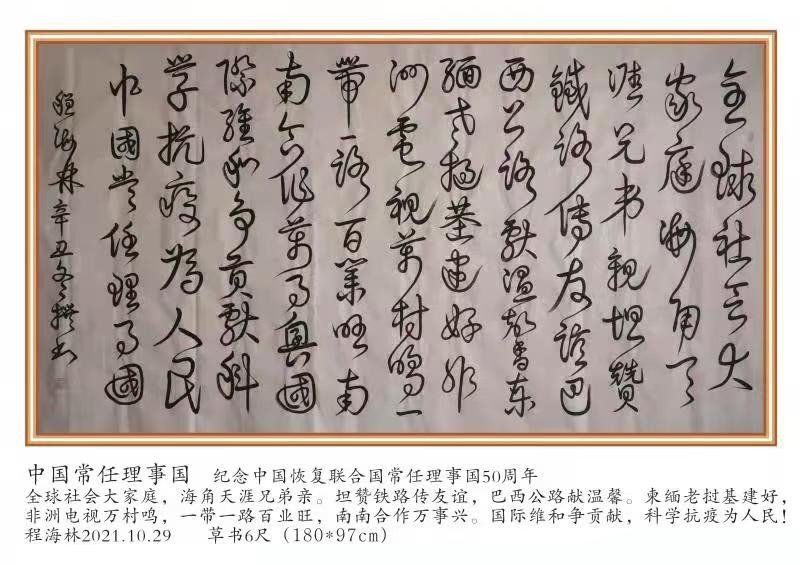 全球社会大
家庭海角天
涯兄弟親坦贊
鐵路傳友誼巴
西公路獻溫馨柬
緬老撾基建好非
洲電視萬村鳴一
帶一路百業旺南
南合作萬事興國
際維和爭貢獻科
學抗疫為人民
中國常任理事國
程海林辛丑冬撰书
中国常任理事国 纪念中国恢复联合国常任理事国50周年
全球社会大家庭，海角天涯兄弟亲。坦赞铁路传友谊，巴西公路献温馨。柬缅老挝基建好，
非洲电视万村鸣，一带一路百业旺，南南合作万事兴。国际维和争贡献，科学抗疫为人民！
程海林2021.10.29 草书6尺（180*97cm）